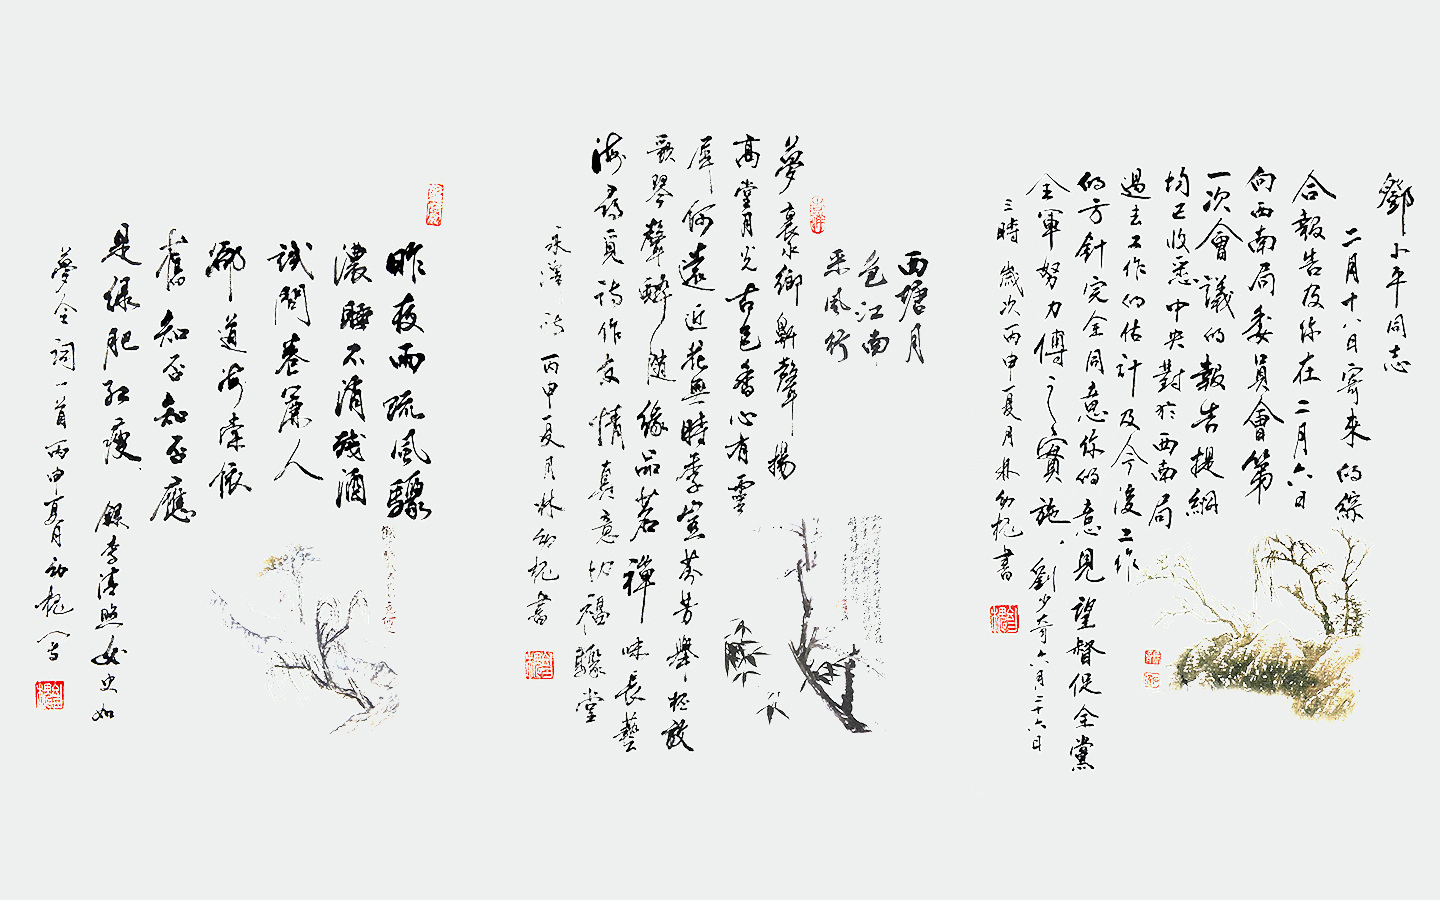 鄧小平同志
二月十八日寄来的綜
合報告及你在二月六日
向西南局委員會第
一次會議的報告提綱
均已收悉中央對於西南局
過去工作的估計及今後工作
的方針完全同意你的意見望督促全黨
全軍努力傅之實施劉少奇六月二十六日
三時 歲次丙申夏月林幼槐書
西塘月
色江南
采風行
夢裏水鄉鼾聲揚
高堂月光古色香心有靈
犀何遠近花無時季豈芬芳舉杯放
歌琴聲醉隨緣品茗禪味長藝
海尋覓詩作友情真意切福驟堂
詩丙申夏月林幼槐書
昨夜雨疏風驟
濃睡不消殘酒
試問卷簾人
卻道海棠依
舊知否知否應
是綠肥紅瘦 錄李清照女史如
夢令詞一首丙申夏月幼槐寫